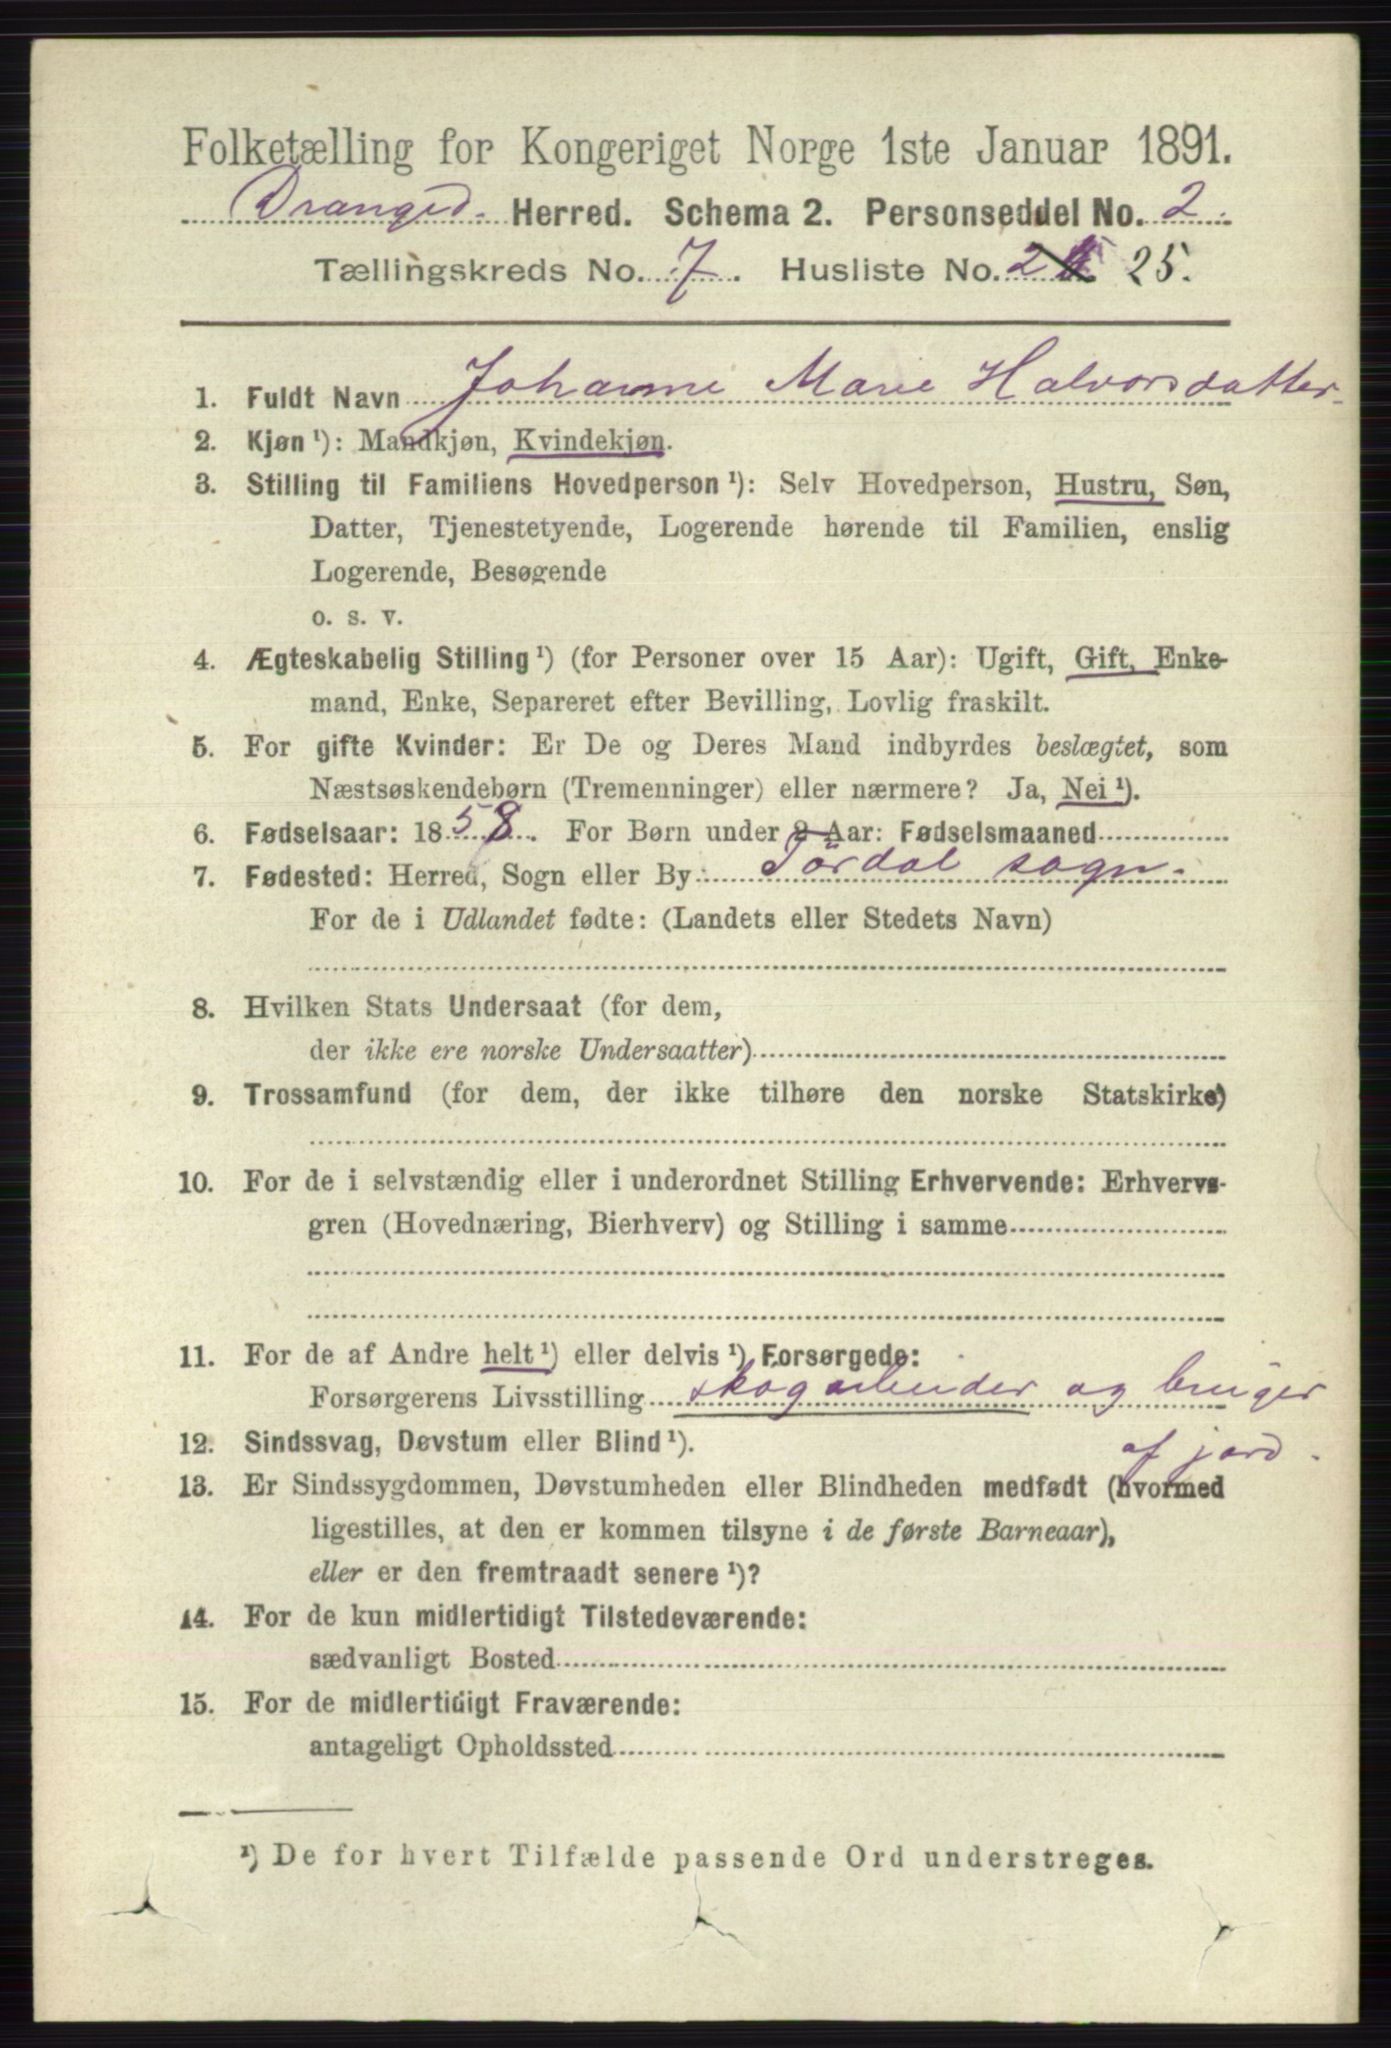 Folketælling for Kongeriget Norge 1ste Januar 1891.
Dranged. Herred. Schema 2. Personseddel No. 2.
Tællingskreds No. 7. Husliste No. 25.
1. Fuldt Navn Johanne Marie Halvorsdatter
2. Kjøn ¹): Mandkjøn, Kvindekjøn.
3. Stilling til Familiens Hovedperson ¹): Selv Hovedperson, Hustru, Søn,
Datter, Tjenestetyende, Logerende hørende til Familien, enslig
Logerende, Besøgende
o. s. v.
4. Ægteskabelig Stilling ¹) (for Personer over 15 Aar): Ugift, Gift, Enke-
mand, Enke, Separeret efter Bevilling, Lovlig fraskilt.
5. For gifte Kvinder: Er De og Deres Mand indbyrdes beslægtet, som
Næstsøskendebørn (Tremenninger) eller nærmere? Ja, Nei ¹).
6. Fødselsaar: 1858. For Børn under 2 Aar: Fødselsmaaned
7. Fødested: Herred, Sogn eller By Tördal sogn.
For de i Udlandet fødte: (Landets eller Stedets Navn)
8. Hvilken Stats Undersaat (for dem,
der ikke ere norske Undersaatter)
9. Trossamfund (for dem, der ikke tilhøre den norske Statskirke)
10. For de i selvstændig eller i underordnet Stilling Erhvervende: Erhvervs-
gren (Hovednæring, Bierhverv) og Stilling i samme
11. For de af Andre helt ¹) eller delvis ¹) Forsørgede:
Forsørgerens Livsstilling skogarbeider og bruger
af jord.
12. Sindssvag, Døvstum eller Blind ¹).
13. Er Sindssygdommen, Døvstumheden eller Blindheden medfødt (hvormed
ligestilles, at den er kommen tilsyne i de første Barneaar),
eller er den fremtraadt senere ¹)?
14. For de kun midlertidigt Tilstedeværende:
sædvanligt Bosted
15. For de midlertidigt Fraværende:
antageligt Opholdssted
¹) De for hvert Tilfælde passende Ord understreges.